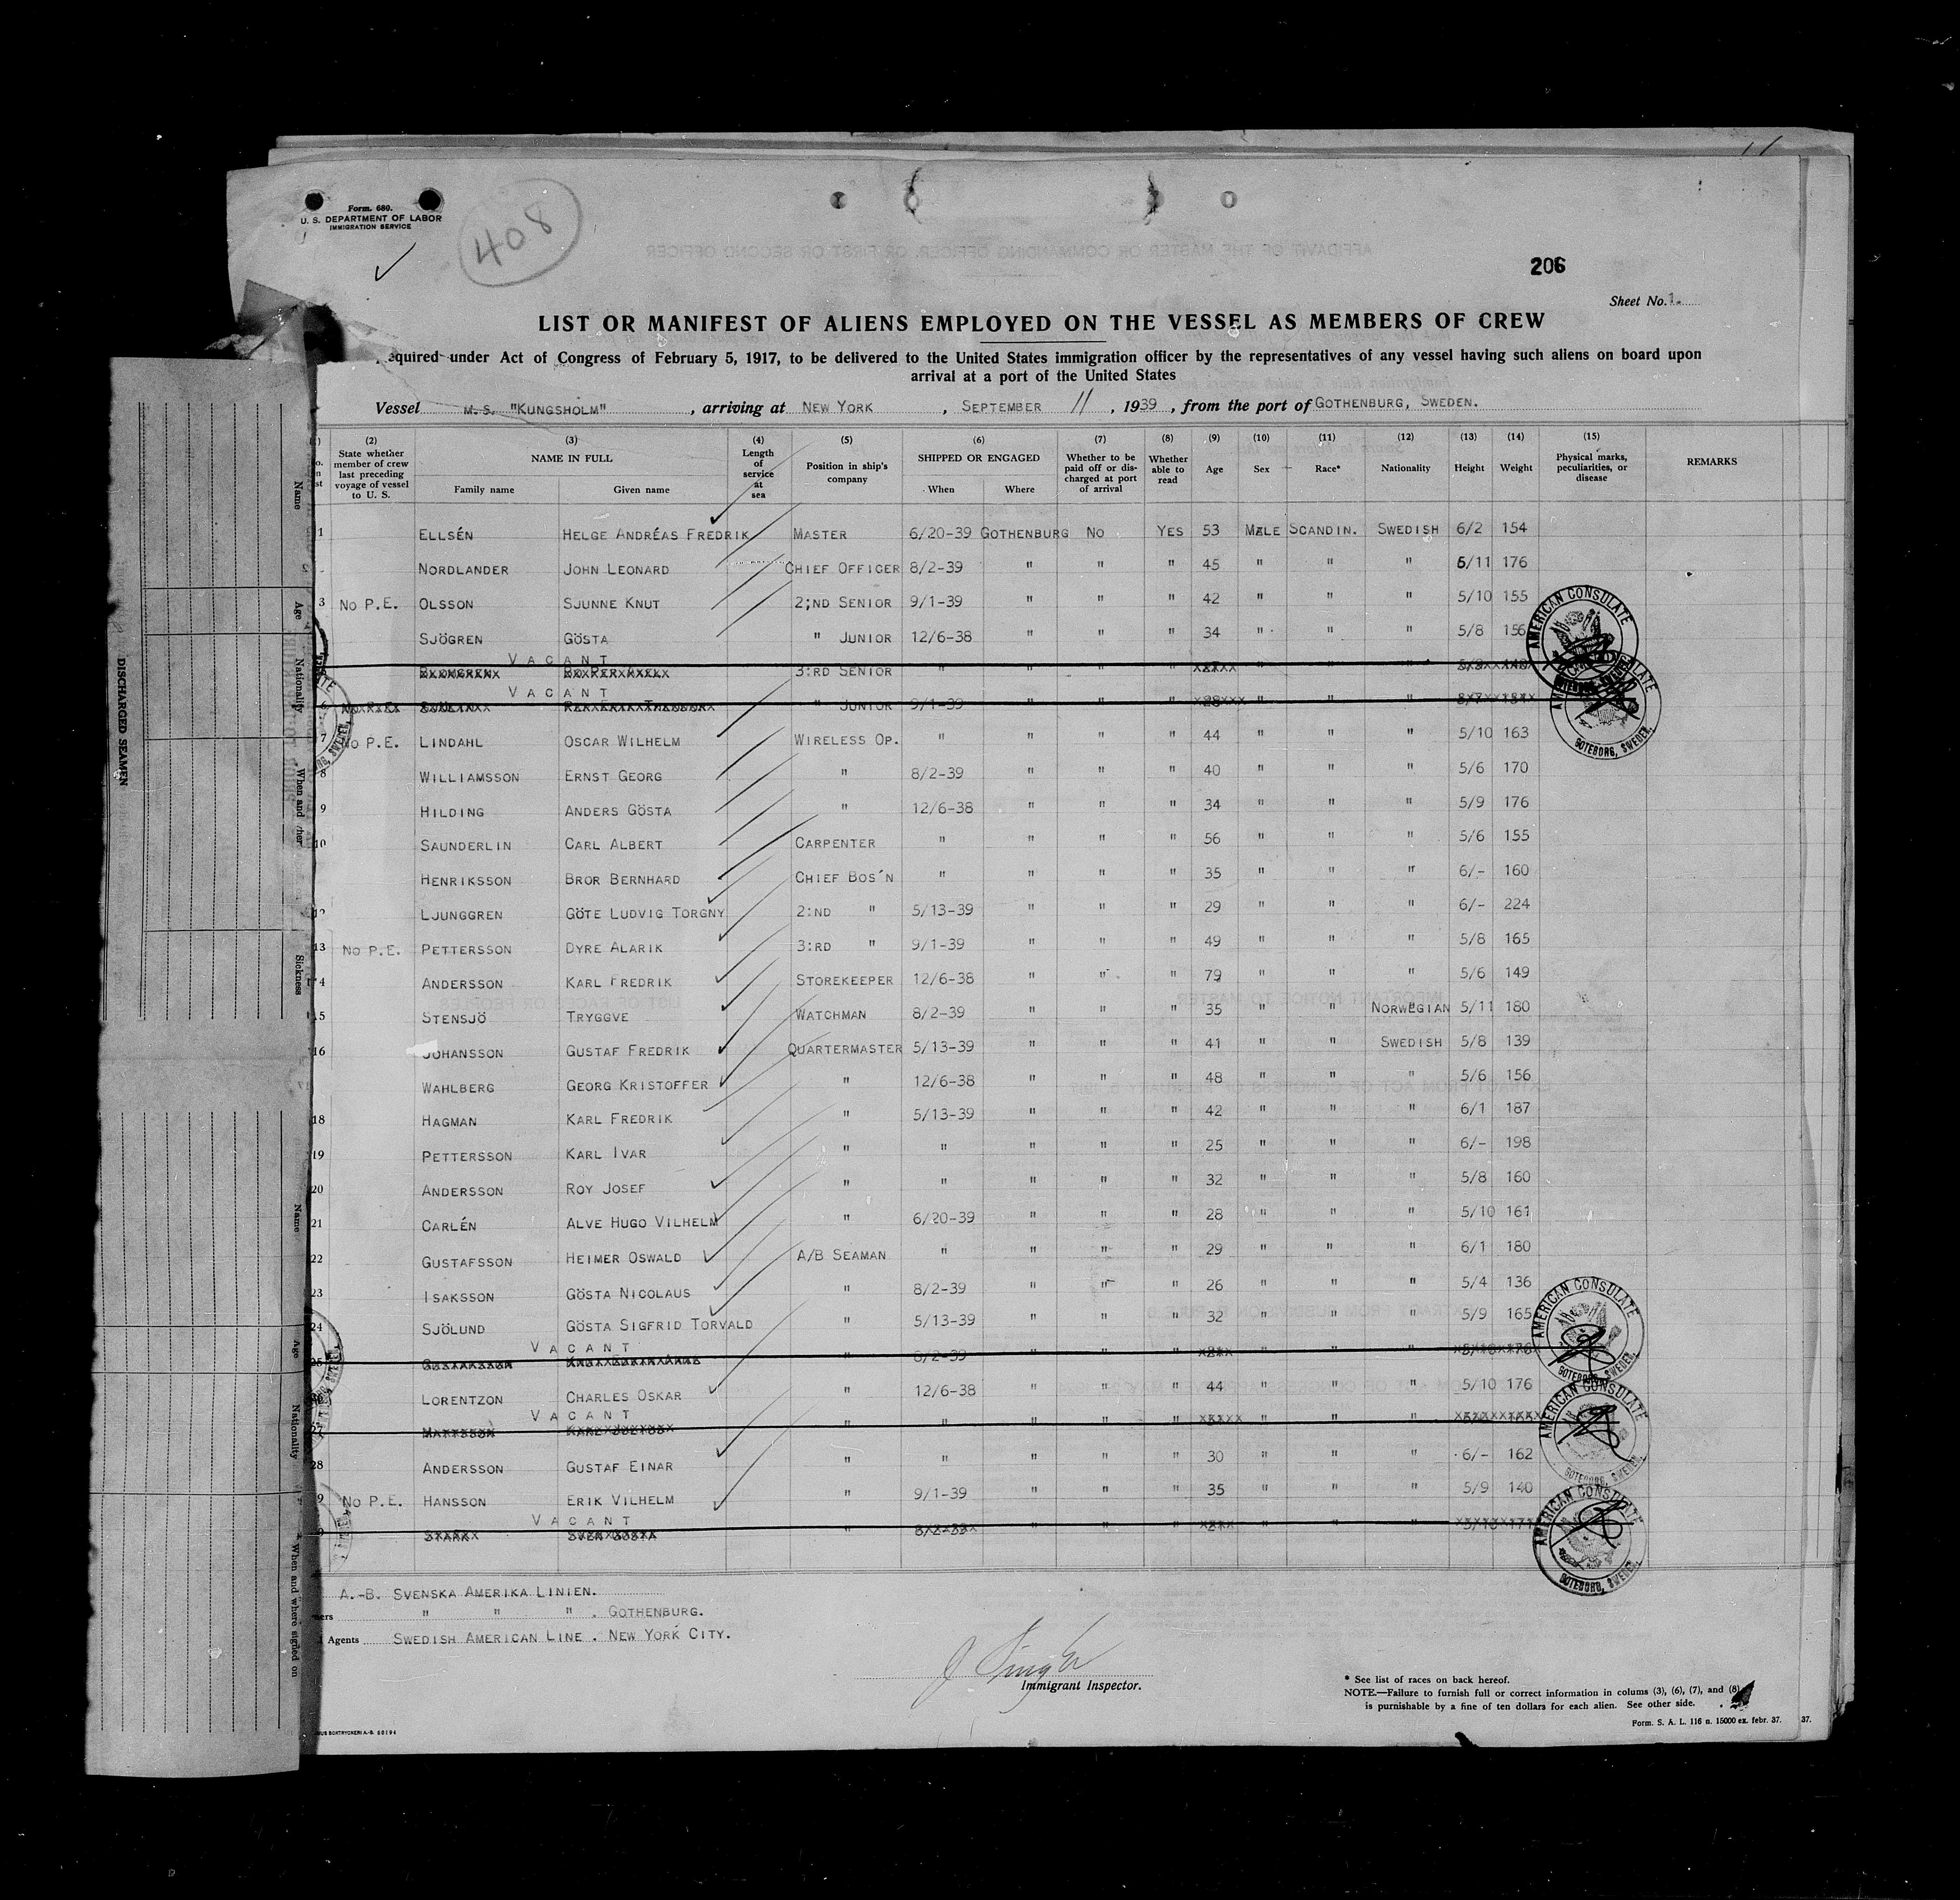 Form. 680.
U. S. DEPARTMENT OF LABOR
IMMIGRATION SERVICE
408
206
Sheet No. 1.
LIST OR MANIFEST OF ALIENS EMPLOYED ON THE VESSEL AS MEMBERS OF CREW
equired under Act of Congress of February 5, 1917, to be delivered to the United States immigration officer by the representatives of any vessel having such aliens on board upon
arrival at a port of the United States
Vessel M.S. "KUNGSHOLM", arriving at NEW YORK, SEPTEMBER 11, 1939, from the port of GOTHENBURG, SWEDEN.
(2) (3) (4) (5) (6) (7) (8) (9) (10) (11) (12) (13) (14) (15)
State whether member of crew last preceding voyage of vessel to U. S. NAME IN FULL Family name Given name Length of service at sea Position in ship's company SHIPPED OR ENGAGED When Where Whether to be paid off or discharged at port of arrival Whether able to read Age Sex Race* Nationality Height Weight Physical marks, peculiarities, or disease REMARKS
1 ELLSÉN HELGE ANDRÉAS FREDRIK MASTER 6/20-39 GOTHENBURG NO YES 53 MALE SCANDIN. SWEDISH 6/2 154
NORDLANDER JOHN LEONARD CHIEF OFFICER 8/2-39 " " " 45 " " " 5/11 176
3 NO P.E. OLSSON SJUNNE KNUT 2;ND SENIOR 9/1-39 " " " 42 " " " 5/10 155
SJÖGREN GÖSTA " JUNIOR 12/6-38 " " " 34 " " " 5/8 156
VACANT 3:RD SENIOR " " " " " " "
VACANT " JUNIOR 9/1-39 " " " 28 " " "
7 NO P.E. LINDAHL OSCAR WILHELM WIRELESS OP. " " " " 44 " " " 5/10 163
8 WILLIAMSSON ERNST GEORG " 8/2-39 " " " 40 " " " 5/6 170
9 HILDING ANDERS GÖSTA " 12/6-38 " " " 34 " " " 5/9 176
10 SAUNDERLIN CARL ALBERT CARPENTER " " " " 56 " " " 5/6 155
HENRIKSSON BROR BERNHARD CHIEF BOS'N " " " " 35 " " " 6/- 160
12 LJUNGGREN GÖTE LUDVIG TORGNY 2:ND " 5/13-39 " " " 29 " " " 6/- 224
13 NO P.E. PETTERSSON DYRE ALARIK 3:RD " 9/1-39 " " " 49 " " " 5/8 165
14 ANDERSSON KARL FREDRIK STOREKEEPER 12/6-38 " " " 79 " " " 5/6 149
15 STENSJÖ TRYGGVE WATCHMAN 8/2-39 " " " 35 " " NORWEGIAN 5/11 180
16 JOHANSSON GUSTAF FREDRIK QUARTERMASTER 5/13-39 " " " 41 " " SWEDISH 5/8 139
WAHLBERG GEORG KRISTOFFER " 12/6-38 " " " 48 " " " 5/6 156
18 HAGMAN KARL FREDRIK " 5/13-39 " " " 42 " " " 6/1 187
19 PETTERSSON KARL IVAR " " " " " 25 " " " 6/- 198
20 ANDERSSON ROY JOSEF " " " " " 32 " " " 5/8 160
21 CARLÉN ALVE HUGO VILHELM " 6/20-39 " " " 28 " " " 5/10 161
22 GUSTAFSSON HEIMER OSWALD A/B SEAMAN " " " " 29 " " " 6/1 180
23 ISAKSSON GÖSTA NICOLAUS " 8/2-39 " " " 26 " " " 5/4 136
24 SJÖLUND GÖSTA SIGFRID TORVALD " 5/13-39 " " " 32 " " " 5/9 165
25 VACANT " 8/2-39 " " " " " "
26 LORENTZON CHARLES OSKAR " 12/6-38 " " " 44 " " " 5/10 176
27 VACANT MATTSSON " " " " " " " "
28 ANDERSSON GUSTAF EINAR " " " " " 30 " " " 6/- 162
9 NO P.E. HANSSON ERIK VILHELM " 9/1-39 " " " 35 " " " 5/9 140
VACANT STARK SVEN GÖSTA " 8/2-39 " " " " " "
AMERICAN CONSULATE
GOTEBORG, SWEDEN.
AMERICAN CONSULATE
GOTEBORG, SWEDEN.
AMERICAN CONSULATE
GOTEBORG, SWEDEN.
AMERICAN CONSULATE
GOTEBORG, SWEDEN.
AMERICAN CONSULATE
GOTEBORG, SWEDEN.
A.-B. SVENSKA AMERIKA LINIEN.
ners " " ". GOTHENBURG.
Agents SWEDISH AMERICAN LINE. NEW YORK CITY.
Immigrant Inspector.
* See list of races on back hereof.
NOTE.—Failure to furnish full or correct information in colums (3), (6), (7), and (8)
is purnishable by a fine of ten dollars for each alien. See other side.
Form. S. A. L. 116 n. 15000 ex. febr. 37.
37.
DISCHARGED SEAMEN
Name
Age
Nationality
When and
Sickness
Name
Age
Nationality
When and where signed on